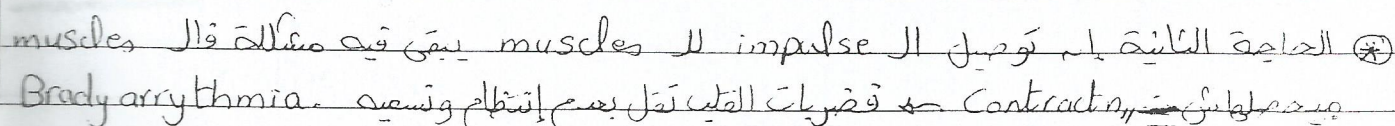 * الحاجة التانية إن توصيل ال impulse لل muscles يبقى فيه مشكلة فال muscles
ميحصلهاش contractn, فضربات القلب تقل بعدم إنتظام وتسميه Bradyarrythmia.